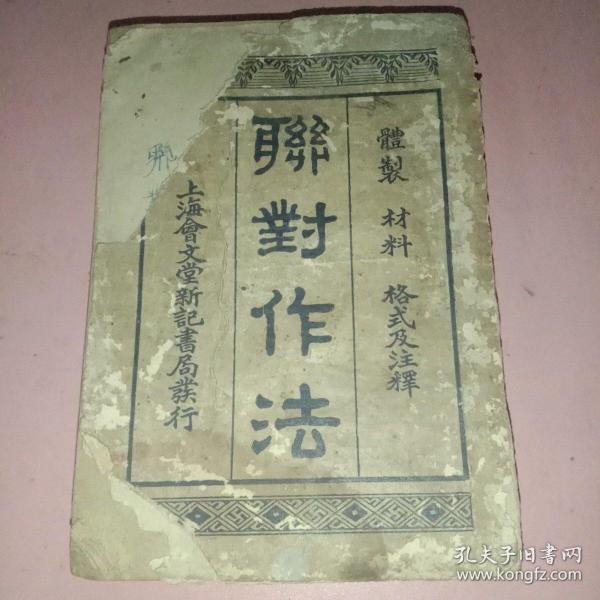 體製 材料 格式及注釋
聯對作法
上海會文堂新記書局發行
孔夫子旧书网
www.kongfz.com